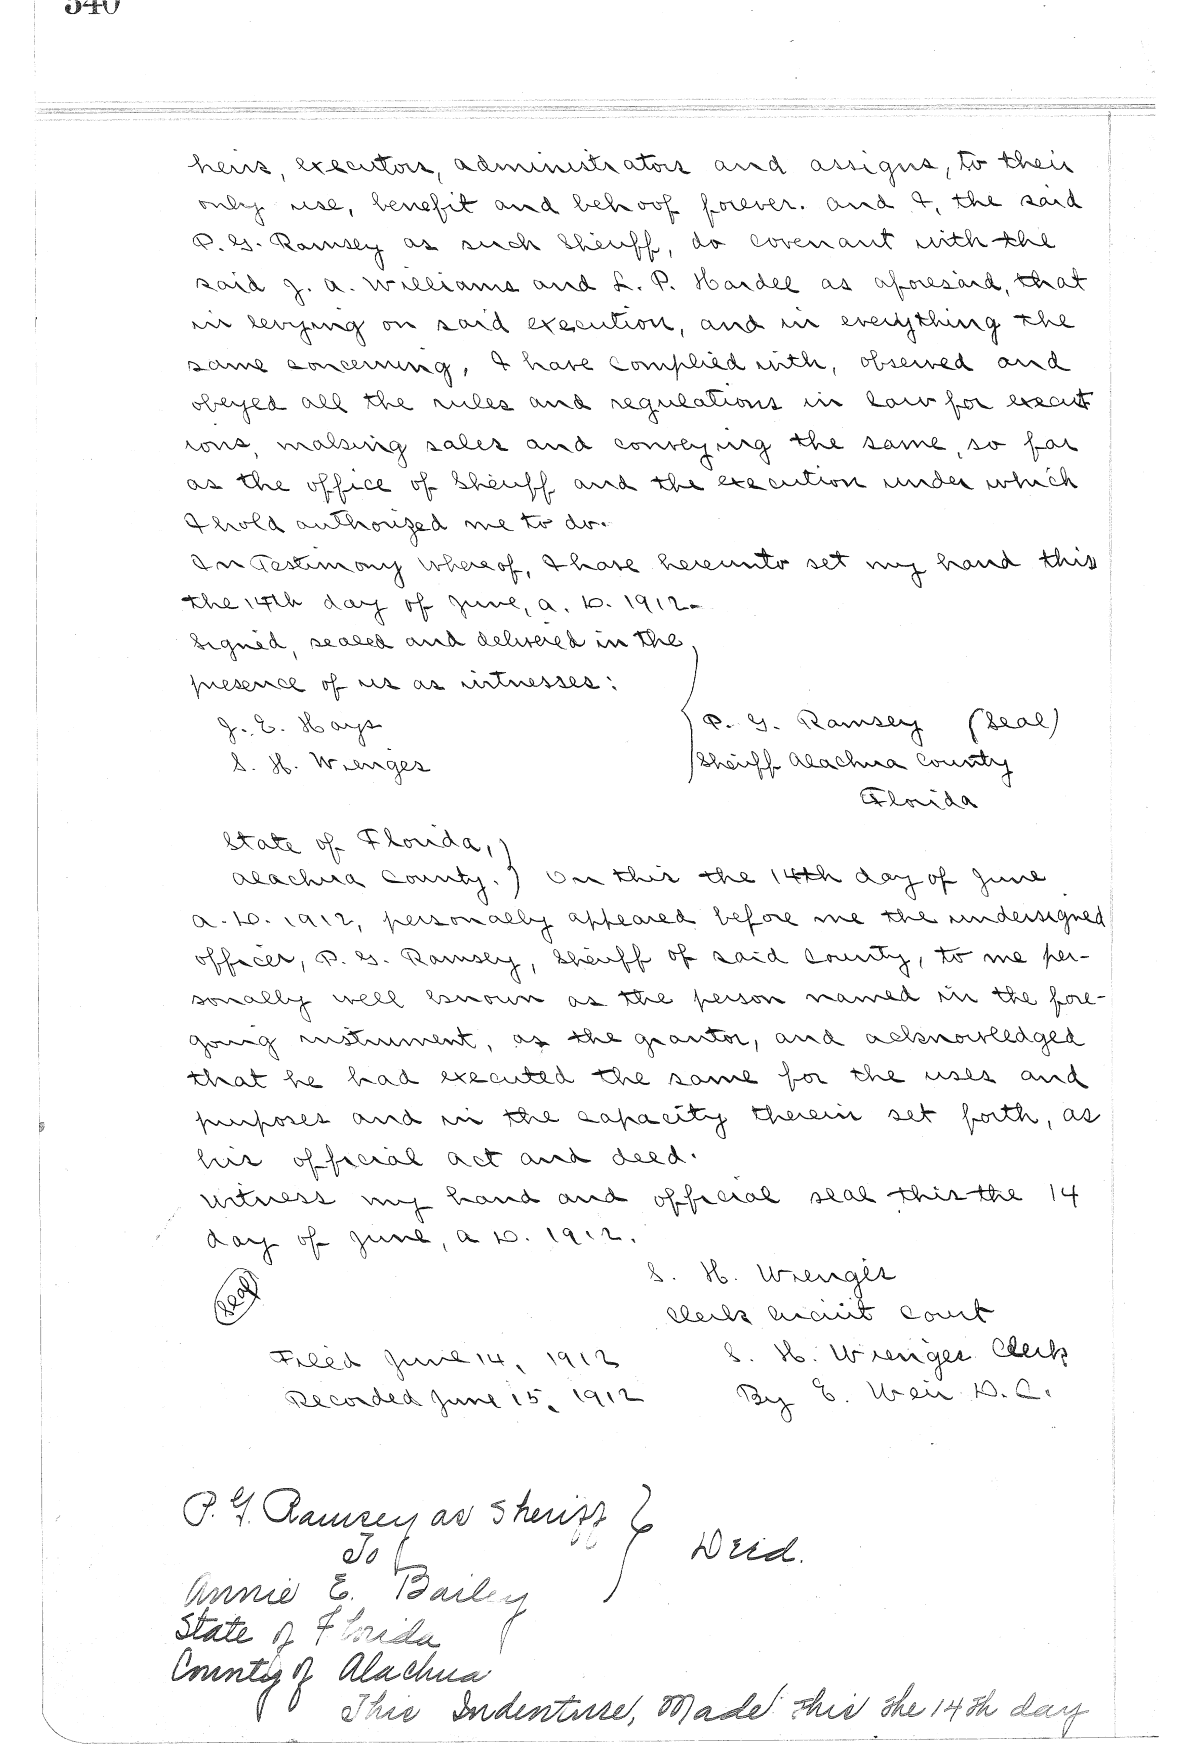 340
heirs, executors, administrators and assigns, to their
only use, benefit and behoof forever. and I, the said
P. G. Ramsey as such Sheriff, do covenant with the
said J. A. Williams and L. P. Hardee as aforesaid, that
in levying on said execution, and in everything the
same concerning, I have complied with, observed and
obeyed all the rules and regulations in law for execut
ions, making sales and conveying the same, so far
as the office of Sheriff and the execution under which
I hold authorized me to do.
In Testimony Whereof, I have hereunto set my hand this
the 14th day of June, A. D. 1912.
Signed, sealed and delivered in the
presence of us as witnesses:
J. E. Hays
P. G. Ramsey (Seal)
S. H. Wienges
Sheriff Alachua County
Florida
State of Florida,
Alachua County. On this the 14th day of June
A. D. 1912, personally appeared before me the undersigned
officer, P. G. Ramsey, Sheriff of said County, to me per-
sonally well known as the person named in the fore-
going instrument, as the grantor, and acknowledged
that he had executed the same for the uses and
purposes and in the capacity therein set forth, as
his official act and deed.
Witness my hand and official seal this the 14
day of June, A D. 1912.
S. H. Wienges
Seal
Clerk Circuit Court
Filed June 14, 1912 S. H. Wienges Clerk
Recorded June 15, 1912 By E. Weir D. C.
P. G. Ramsey as Sheriff
To Deed.
Annie E. Bailey
State of Florida
County of Alachua
This Indenture, Made this the 14th day